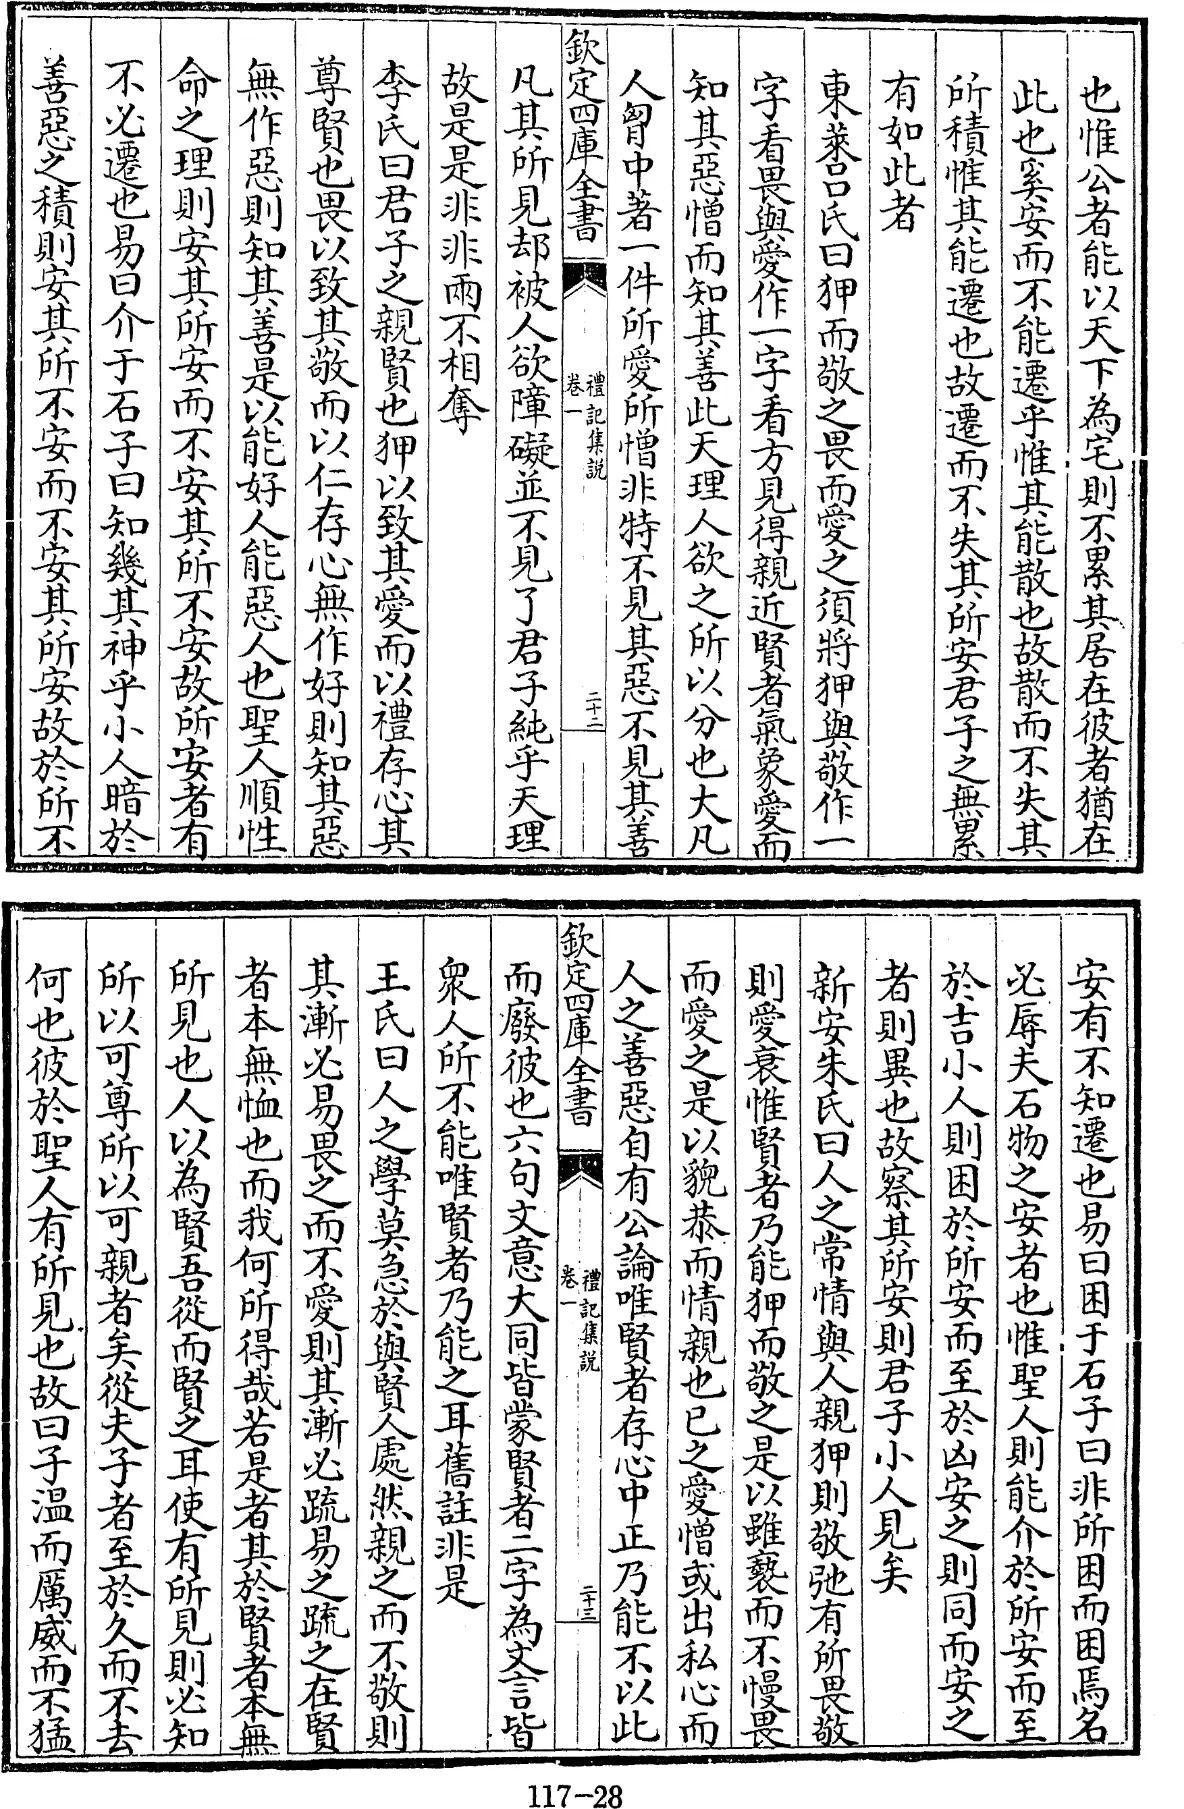 也惟公者能以天下為宅則不累其居在彼者猶在
此也奚安而不能遷乎惟其能散也故散而不失其
所積惟其能遷也故遷而不失其所安君子之無累
有如此者
東萊呂氏曰狎而敬之畏而愛之須將狎與敬作一
字看畏與愛作一字看方見得親近賢者氣象愛而
知其惡憎而知其善此天理人欲之所以分也大凡
人胷中著一件所愛所憎非特不見其惡不見其善
欽定四庫全書
禮記集說
卷一
二十二
凡其所見却被人欲障礙並不見了君子純乎天理
故是是非非兩不相奪
李氏曰君子之親賢也狎以致其愛而以禮存心其
尊賢也畏以致其敬而以仁存心無作好則知其惡
無作惡則知其善是以能好人能惡人也聖人順性
命之理則安其所安而不安其所不安故所安者有
不必遷也易曰介于石子曰知幾其神乎小人暗於
善惡之積則安其所不安而不安其所安故於所不
安有不知遷也易曰困于石子曰非所困而困焉名
必辱夫石物之安者也惟聖人則能介於所安而至
於吉小人則困於所安而至於凶安之則同而安之
者則異也故察其所安則君子小人見矣
新安朱氏曰人之常情與人親狎則敬弛有所畏敬
則愛衰惟賢者乃能狎而敬之是以雖褻而不慢畏
而愛之是以貌恭而情親也已之愛憎或出私心而
人之善惡自有公論唯賢者存心中正乃能不以此
欽定四庫全書
禮記集說
卷一
二十三
而廢彼也六句文意大同皆蒙賢者二字為文言皆
衆人所不能唯賢者乃能之耳舊註非是
王氏曰人之學莫急於與賢人處然親之而不敬則
其漸必易畏之而不愛則其漸必疏易之疏之在賢
者本無恤也而我何所得哉若是者其於賢者本無
所見也人以為賢吾從而賢之耳使有所見則必知
所以可尊所以可親者矣從夫子者至於久而不去
何也彼於聖人有所見也故曰子溫而厲威而不猛
117-28